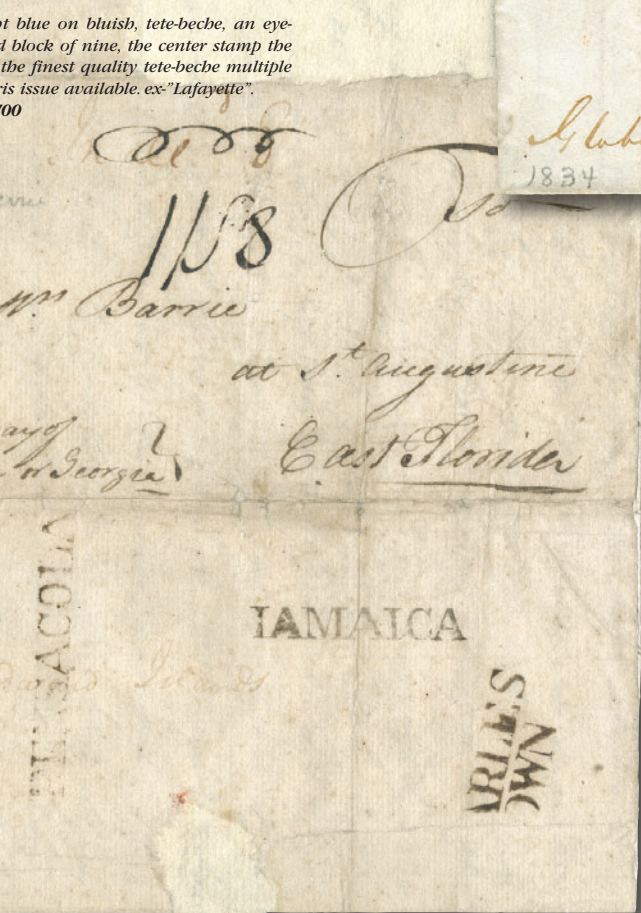 pt blue on bluish, tete-beche, an eye-
d block of nine, the center stamp the
the finest quality tete-beche multiple
ris issue available. ex-"Lafayette".
700
Glob
1834
Barrie
at St. Augustine
East Florida
or Georgia
PENSACOLA
IAMAICA
ARLES
OWN
Islands